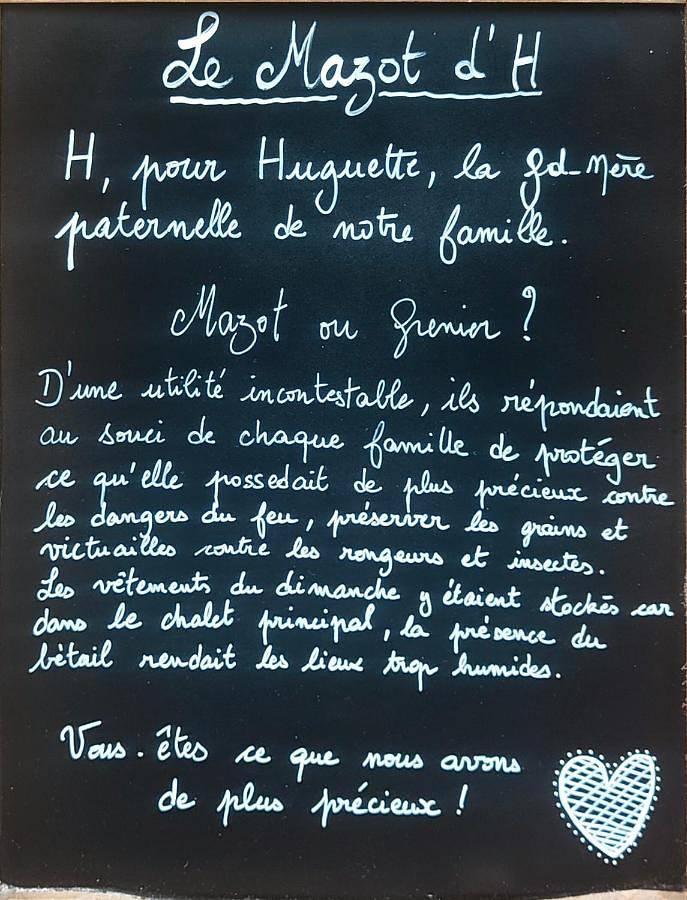 Le Mazot d'H
H, pour Huguette, la gd-mère
paternelle de notre famille.
Mazot ou grenier ?
D'une utilité incontestable, ils répondaient
au souci de chaque famille de protéger
ce qu'elle possedait de plus précieux contre
les dangers du feu, préserver les grains et
victuailles contre les rongeurs et insectes.
Les vêtements du dimanche y étaient stockés car
dans le chalet principal, la présence du
bétail rendait les lieux trop humides.
Vous êtes ce que nous avons
de plus précieux !